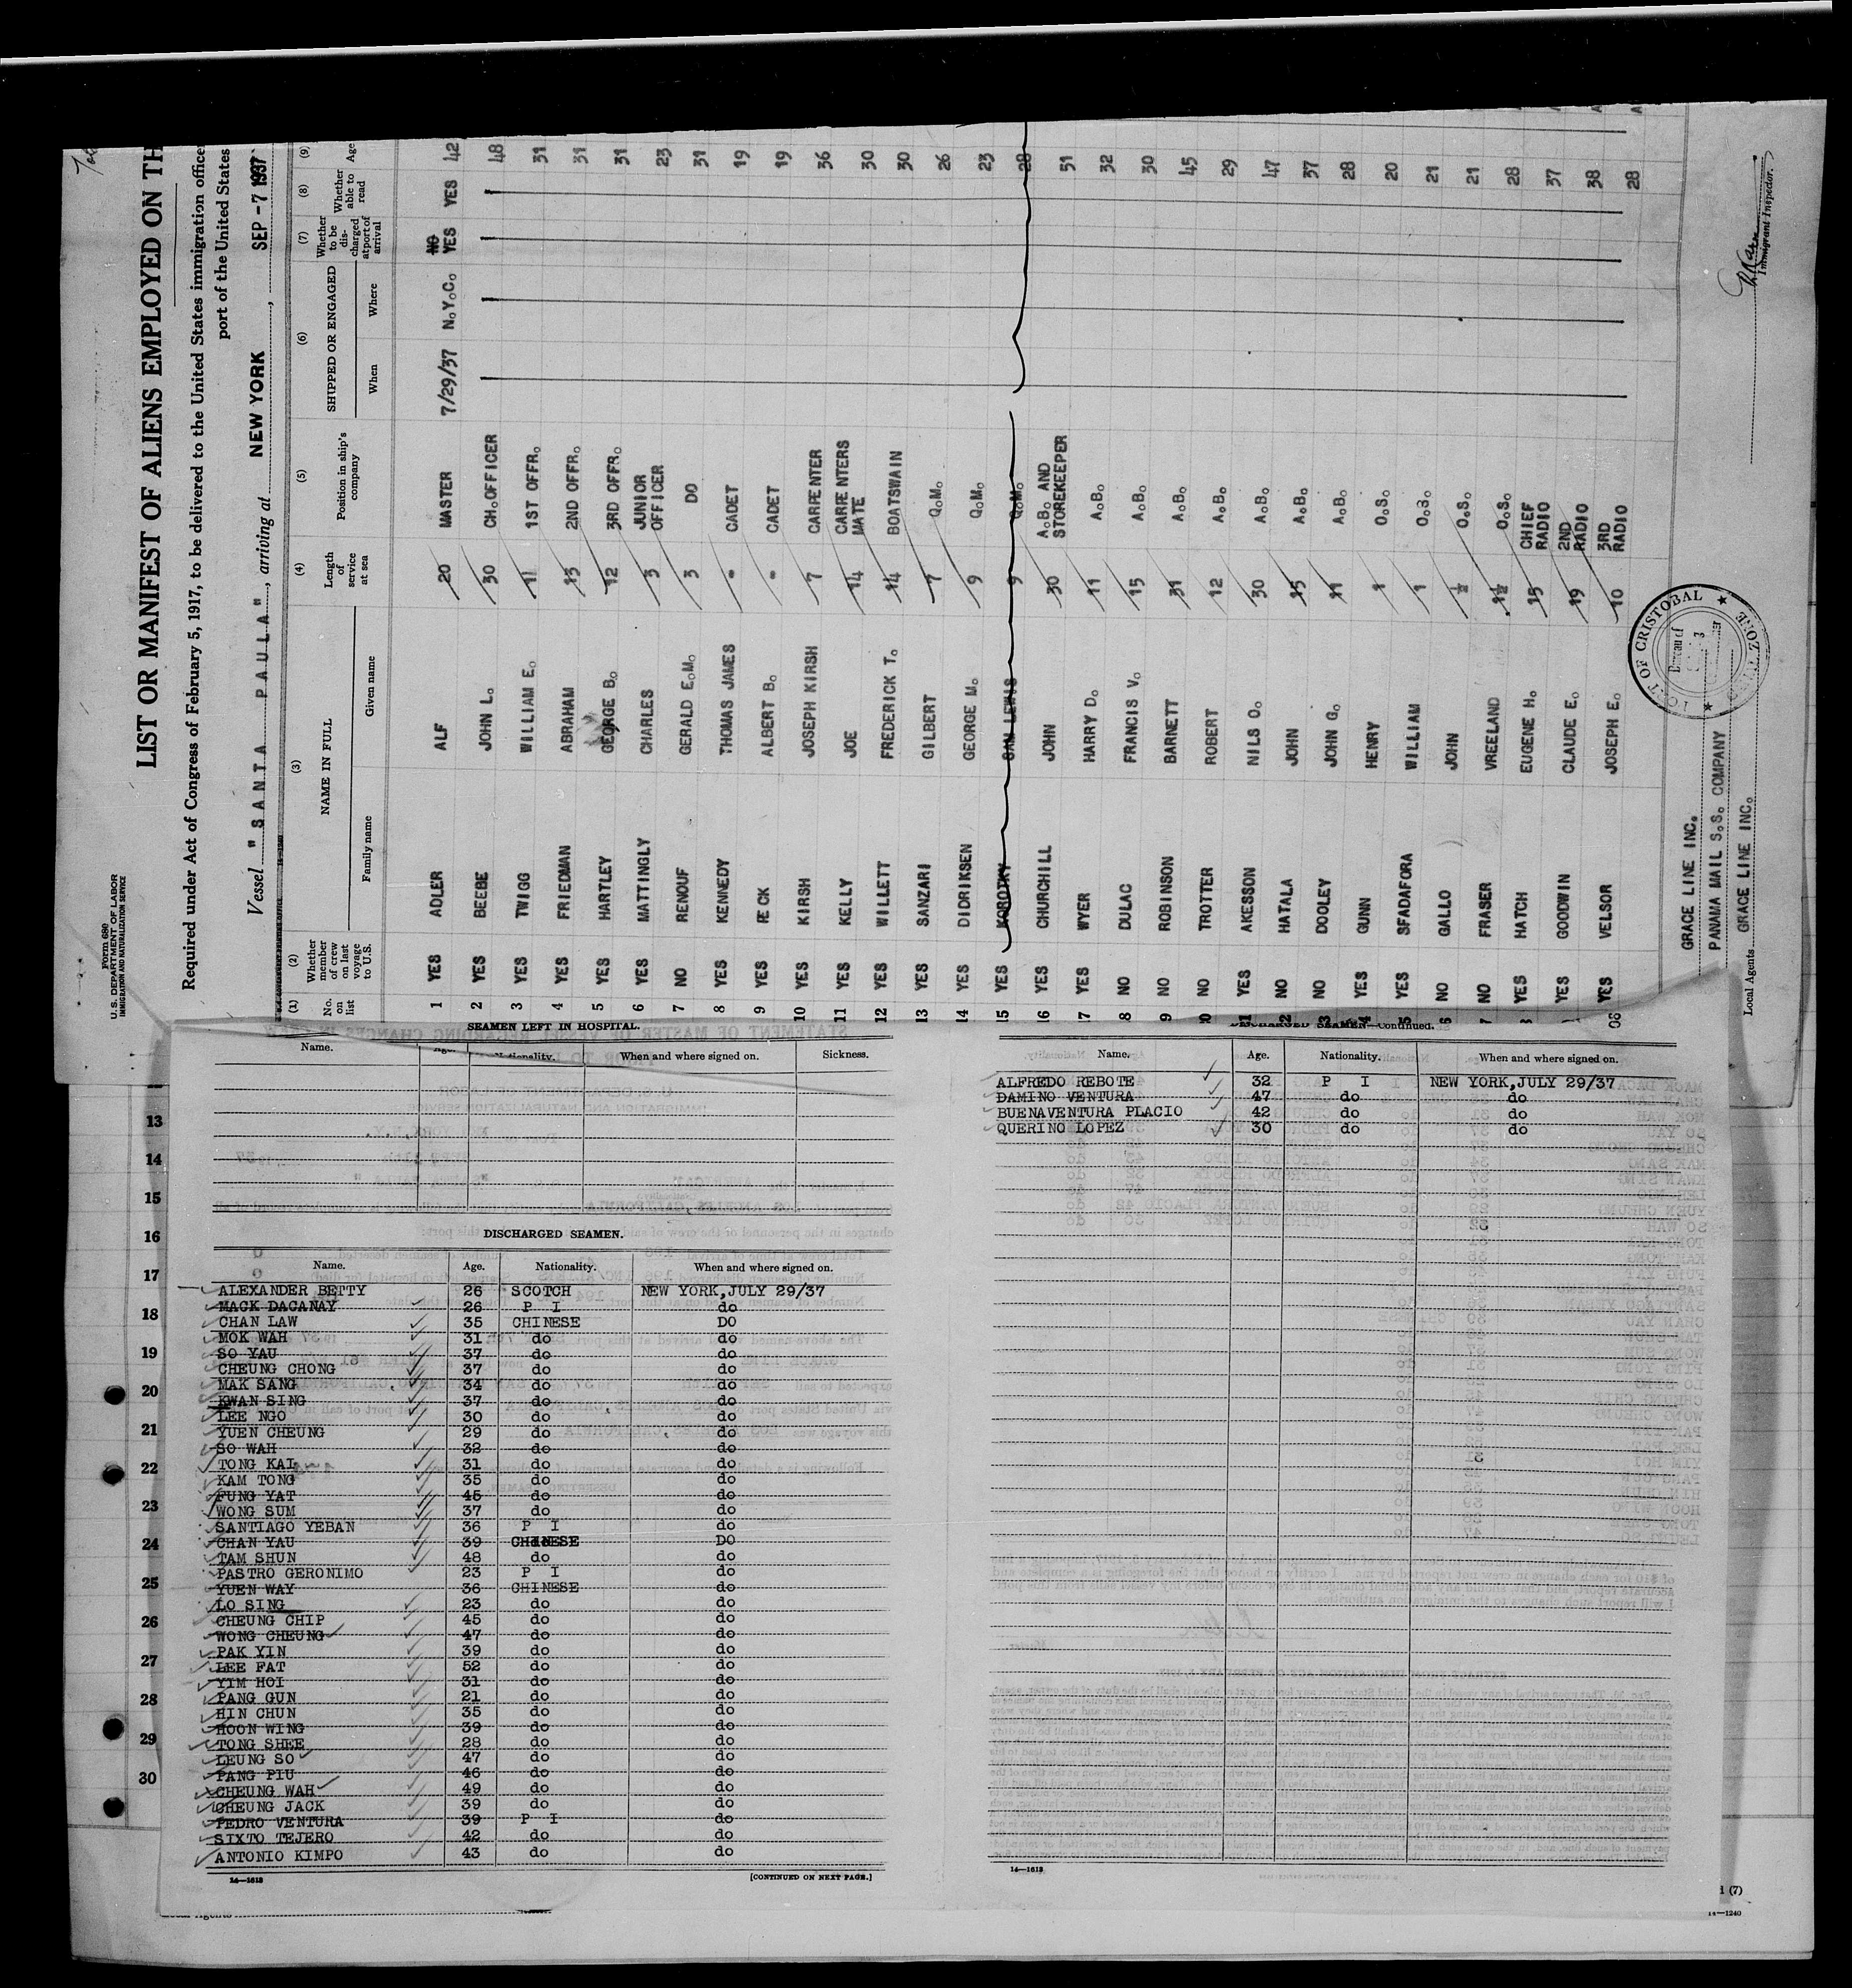 Form 680
U. S. DEPARTMENT OF LABOR
IMMIGRATION AND NATURALIZATION SERVICE
LIST OR MANIFEST OF ALIENS EMPLOYED ON TH
Required under Act of Congress of February 5, 1917, to be delivered to the United States immigration office
port of the United States
Vessel "SANTA PAULA", arriving at NEW YORK, SEP -7 1937
(1) (2) (3) (4) (5) (6) (7) (8) (9)
No. on list Whether member of crew on last voyage to U.S. NAME IN FULL Family name Given name Length of service at sea Position in ship's company SHIPPED OR ENGAGED When Where Whether to be discharged at port of arrival Whether able to read Age
1 YES ADLER ALF 20 MASTER 7/29/37 N.Y.C. NO YES YES 42
2 YES BEEBE JOHN L. 30 CH.OFFICER 48
3 YES TWIGG WILLIAM E. 11 1ST OFFR. 31
4 YES FRIEDMAN ABRAHAM 13 2ND OFFR. 31
5 YES HARTLEY GEORGE B. 12 3RD OFFR. 31
6 YES MATTINGLY CHARLES 3 JUNIOR OFFICER 23
7 NO RENOUF GERALD E.M. 3 DO 31
8 YES KENNEDY THOMAS JAMES - CADET 19
9 YES ECK ALBERT B. - CADET 19
10 YES KIRSH JOSEPH KIRSH 7 CARPENTER 36
11 YES KELLY JOE 14 CARPENTERS MATE 30
12 YES WILLETT FREDERICK T. 14 BOATSWAIN 30
13 YES SANZARI GILBERT 7 Q.M. 26
14 YES DIDRIKSEN GEORGE M. 9 Q.M. 23
15 YES SAM LEWIS 9 Q.M. 28
16 YES CHURCHILL JOHN 30 A.B. AND STOREKEEPER 51
7 YES WYER HARRY D. 11 A.B. 32
8 NO DULAC FRANCIS V. 15 A.B. 30
9 NO ROBINSON BARNETT 31 A.B. 45
0 NO TROTTER ROBERT 12 A.B. 29
1 YES AKESSON NILS O. 30 A.B. 47
2 NO HATALA JOHN 15 A.B. 37
3 NO DOOLEY JOHN G. 11 A.B. 28
4 YES GUNN HENRY 1 O.S. 20
5 YES SFADAFORA WILLIAM 1 O.S. 21
6 NO GALLO JOHN ½ O.S. 21
7 NO FRASER VREELAND 1½ O.S. 28
YES HATCH EUGENE H. 15 CHIEF RADIO 37
YES GOODWIN CLAUDE E. 19 2ND RADIO 38
YES VELSOR JOSEPH E. 10 3RD RADIO 28
GRACE LINE INC.
PANAMA MAIL S.S. COMPANY
Local Agents GRACE LINE INC.
PORT OF CRISTOBAL
Bureau of
Immigrant Inspector.
SEAMEN LEFT IN HOSPITAL.
Name. Age. Nationality. When and where signed on. Sickness.
13
14
15
16
17
18
19
20
21
22
23
24
25
26
27
28
29
30
DISCHARGED SEAMEN.
Name. Age. Nationality. When and where signed on.
ALEXANDER BETTY 26 SCOTCH NEW YORK,JULY 29/37
MACK DACANAY 26 P I do
CHAN LAW 35 CHINESE DO
MOK WAH 31 do do
SO YAU 37 do do
CHEUNG CHONG 37 do do
MAK SANG 34 do do
KWAN SING 37 do do
LEE NGO 30 do do
YUEN CHEUNG 29 do do
SO WAH 32 do do
TONG KAI 31 do do
KAM TONG 35 do do
FUNG YAT 45 do do
WONG SUM 37 do do
SANTIAGO YEBAN 36 P I do
CHAN YAU 39 CHINESE DO
TAM SHUN 48 do do
PASTRO GERONIMO 23 P I do
YUEN WAY 36 CHINESE do
LO SING 23 do do
CHEUNG CHIP 45 do do
WONG CHEUNG 47 do do
PAK YIN 39 do do
LEE FAT 52 do do
YIM HOI 31 do do
PANG GUN 21 do do
HIN CHUN 35 do do
HOON WING 39 do do
TONG SHEE 28 do do
LEUNG SO 47 do do
PANG PIU 46 do do
CHEUNG WAH 49 do do
CHEUNG JACK 39 do do
PEDRO VENTURA 39 P I do
SIXTO TEJERO 42 do do
ANTONIO KIMPO 43 do do
14—1613 [CONTINUED ON NEXT PAGE.]
DISCHARGED SEAMEN—Continued.
Name. Age. Nationality. When and where signed on.
ALFREDO REBOTE 32 P I NEW YORK,JULY 29/37
DAMINO VENTURA 47 do do
BUENAVENTURA PLACIO 42 do do
QUERINO LOPEZ 30 do do
14—1613
1 (7)
14—1240